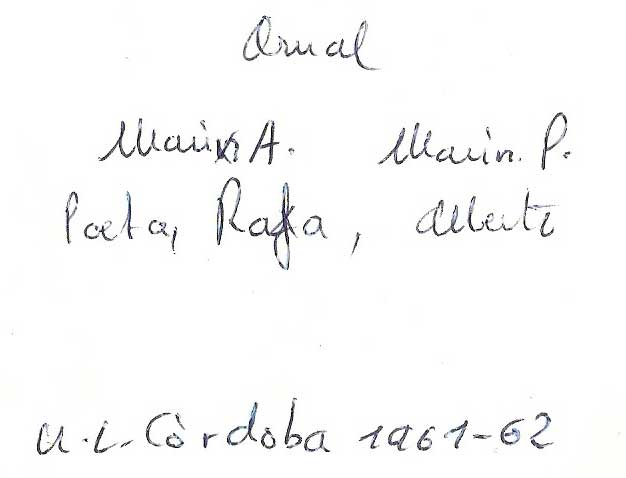 Ornal
Marin A. Marin. P.
Poeta, Rafa, Alberto
U.L. Còrdoba 1961-62